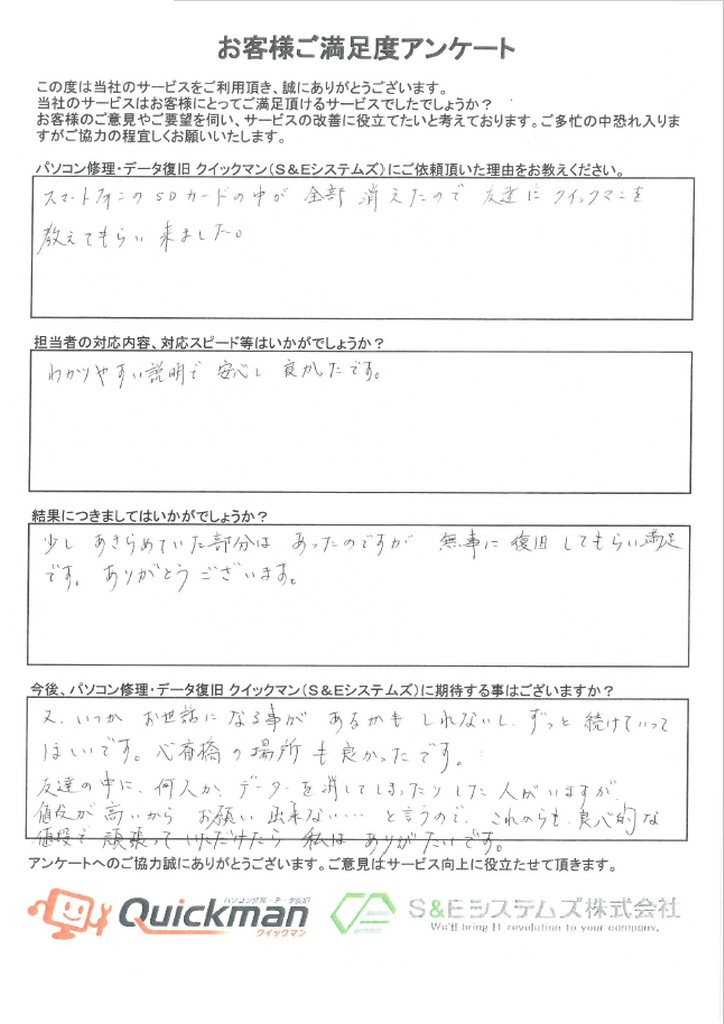 お客様ご満足度アンケート
この度は当社のサービスをご利用頂き、誠にありがとうございます。
当社のサービスはお客様にとってご満足頂けるサービスでしたでしょうか？
お客様のご意見やご要望を伺い、サービスの改善に役立てたいと考えております。ご多忙の中恐れ入りま
すがご協力の程宜しくお願いいたします。
パソコン修理・データ復旧 クイックマン（S＆Eシステムズ）にご依頼頂いた理由をお教えください。
スマートフォンのSDカードの中が 全部 消えたので 友達に クイックマンを
教えてもらい 来ました。
担当者の対応内容、対応スピード等はいかがでしょうか？
わかりやすい説明で 安心し 良かったです。
結果につきましてはいかがでしょうか？
少し あきらめていた部分は あったのですが 無事に 復旧 してもらい満足
です。 ありがとうございます。
今後、パソコン修理・データ復旧 クイックマン（S＆Eシステムズ）に期待する事はございますか？
又、いつか お世話に なる事が あるかも しれないし、ずっと 続けていって
ほしいです。心斎橋の場所も良かったです。
友達の中に、何人か、データーを消してしまったりした 人がいますが
値段が 高いから お願い 出来ない…… と言うので、これからも 良心的な
値段で 頑張って いただけたら 私は ありがたいです。
アンケートへのご協力誠にありがとうございます。ご意見はサービス向上に役立たせて頂きます。
パソコン修理・データ復旧
Quickman
クイックマン
S&Eシステムズ株式会社
We'll bring IT revolution to your company.